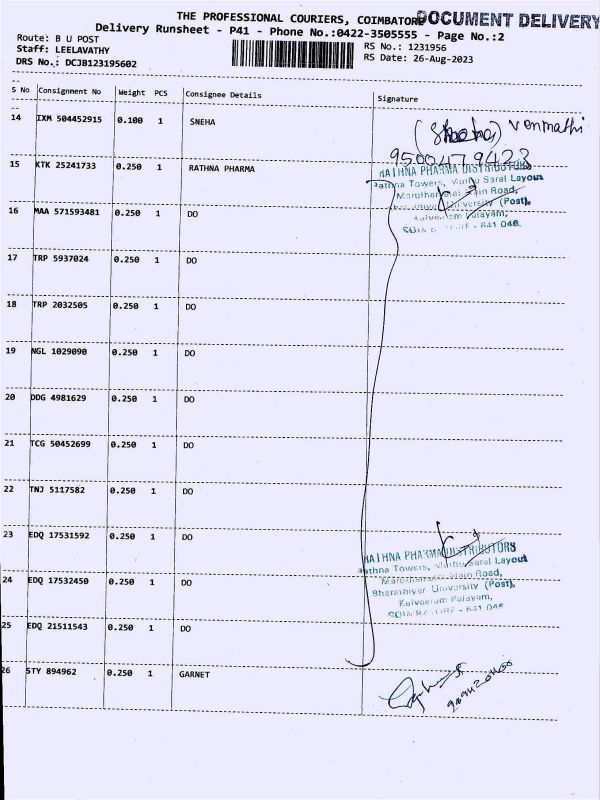 THE PROFESSIONAL COURIERS, COIMBATORE
DOCUMENT DELIVERY
Delivery Runsheet - P41 - Phone No.:0422-3505555 - Page No.:2
Route: B U POST
RS No.: 1231956
Staff: LEELAVATHY
RS Date: 26-Aug-2023
DRS No.: DCJB123195602
S No Consignment No Weight PCS Consignee Details Signature
14 IXM 504452915 0.100 1 SNEHA
Venmathi
9500479423
15 KTK 25241733 0.250 1 RATHNA PHARMA
RATHNA PHARMA DISTRIBUTORS
Rathna Towers, Marutha Saral Layout
Main Road,
University (Post),
Kalveeram Palayam,
641 046
16 MAA 571593481 0.250 1 DO
17 TRP 5937024 0.250 1 DO
18 TRP 2032505 0.250 1 DO
19 NGL 1029090 0.250 1 DO
20 DDG 4981629 0.250 1 DO
21 TCG 50452699 0.250 1 DO
22 TNJ 5117582 0.250 1 DO
23 EDQ 17531592 0.250 1 DO
RATHNA PHARMA DISTRIBUTORS
Rathna Towers, Saral Layout
Main Road,
24 EDQ 17532450 0.250 1 DO
Bharathiyar University (Post),
Kalveeram Palayam,
641 046
25 EDQ 21511543 0.250 1 DO
26 STY 894962 0.250 1 GARNET